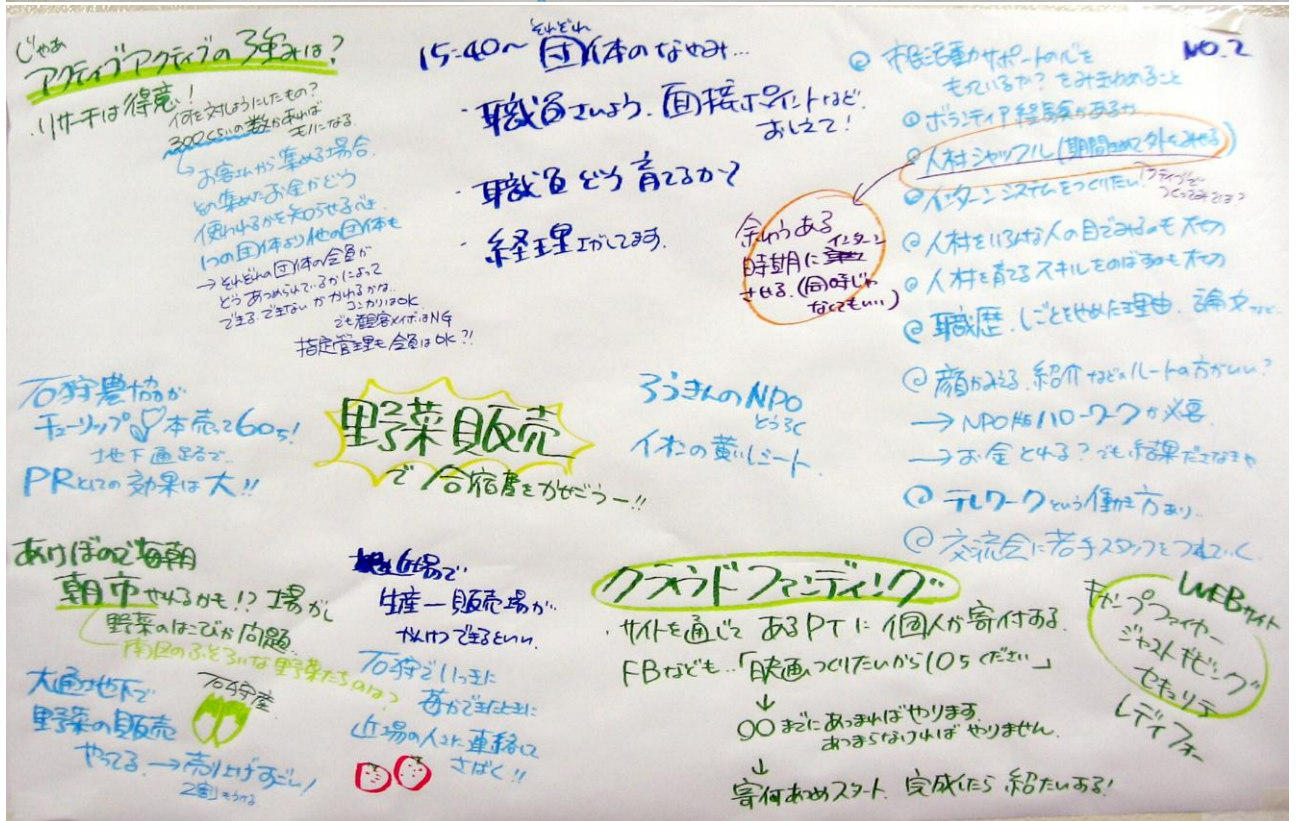 じゃあ
アクティブアクティブの強みは?
・リサーチは得意!
何を対しょうにしたもの?
300くらいの数があれば
モノになる。
→お客さんから集める場合、
その集めたお金がどう
使われるかを知らせるべき
1つの団体より他の団体も
→それぞれの団体の会員が
どうあつめられているかによって
できる、できないがかわるかな。
コンカリはOK
でも観客メイボはNG
指定管理も会員はOK?!
15:40〜それぞれ団体のなやみ…
・職員さいよう、面接ポイントなど
おしえて!
・職員どう育てるか?
・経理さがしてます。
NO.2
@ 市民活動サポートの心を
もっているか?をみきわめること
@ ボランティア経験があるか
@ 人材シャッフル(期間きめて外をみせる)
@ インターンシステムをつくりたい。
アクティブで
つくってみては?
@ 人材をいろんな人の目でみるのも大切
@ 人材を育てるスキルをのばすのも大切
@ 職歴、しごとをやめた理由、論文など
@ 顔がみえる、紹介などのルートの方がいい?
→NPO版ハローワークが必要
→お金とれる?でも結果ださなきゃ
@ テレワークという働き方あり。
@ 交流会に若手スタッフをつれていく
余ゆうある
時期にインターン
させる。(同時じゃ
なくてもいい)
石狩農協が
チューリップ本売って60万!
地下通路で…
PRとしての効果は大!!
野菜販売
で合宿費をかせごうー!!
ろうきんのNPO
とうろく
イオンの黄いレシート
あけぼので毎朝
朝市やれるかも!?工場がし
野菜のはこびが問題
南区のふぞろいな野菜たちのは?
大通地下で
野菜の販売
やってる→売り上げすごい!
2割もうける
石狩産
近場で
生産ー販売場が
かんけつできるといい。
石狩でいっきに
苺ができたときに
近場の人に連絡して
さばく!!
クラウドファンディング
・サイトを通じてあるPTに個人が寄付する
FBなども…「映画つくりたいから10万ください」
↓
○○までにあつまればやります。
あつまらなければやりません。
↓
寄付あつめスタート、完成したら招たいする!
WEBサイト
キャンプファイヤー
ジャストギビング
セキュリテ
レディフォー